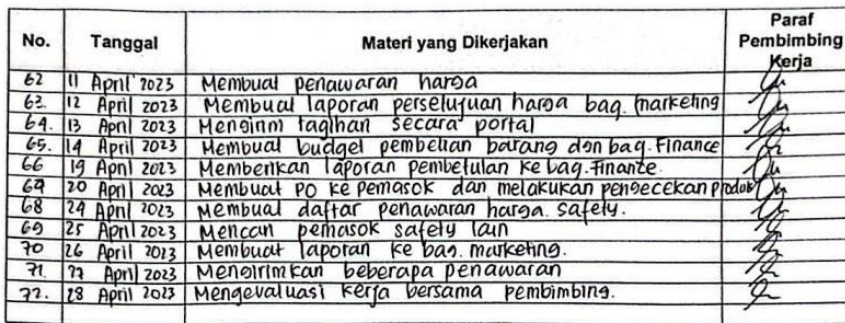 No. Tanggal Materi yang Dikerjakan Paraf Pembimbing Kerja
62 11 April 2023 Membuat penawaran harga
63. 12 April 2023 Membuat laporan persetujuan harga bag. marketing
64. 13 April 2023 Mengirim tagihan secara portal
65. 14 April 2023 Membuat budget pembelian barang dan bag. Finance
66 19 April 2023 Memberikan laporan pembetulan ke bag. Finance.
69 20 April 2023 Membuat PO ke pemasok dan melakukan pengecekan produk
68 24 April 2023 Membuat daftar penawaran harga safety.
69 25 April 2023 Mencari pemasok safety lain
70 26 April 2023 Membuat laporan ke bag. marketing.
71. 27 April 2023 Mengirimkan beberapa penawaran
72. 28 April 2023 Mengevaluasi kerja bersama pembimbing.